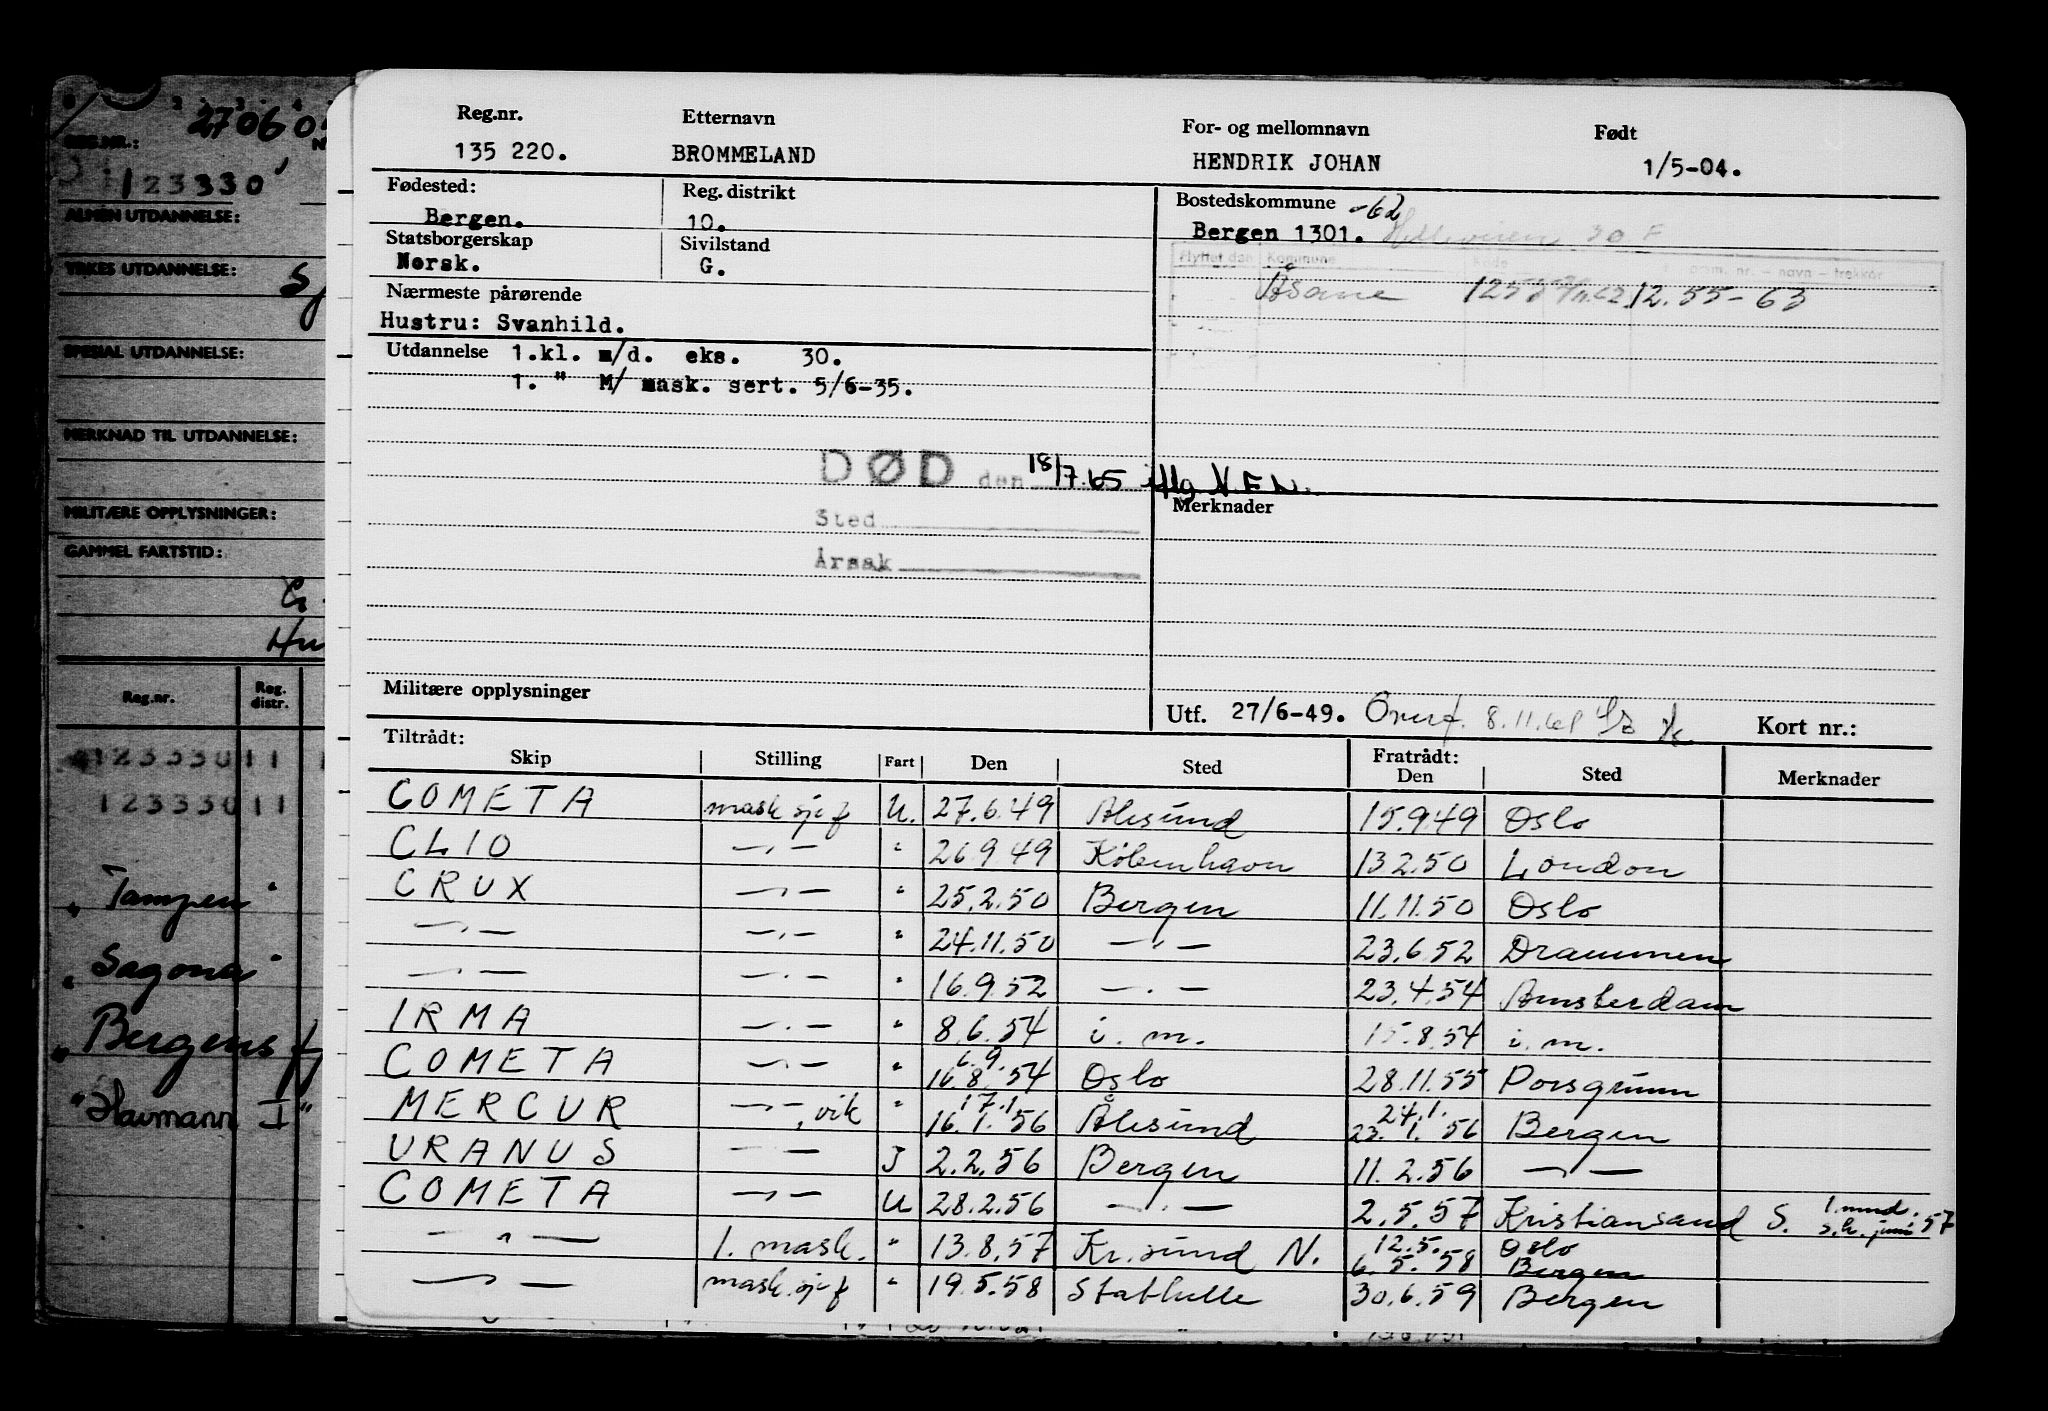 27060
REG.NR.:
123330
ALMEN UTDANNELSE:
YRKES UTDANNELSE:
SPESIAL UTDANNELSE:
MERKNAD TIL UTDANNELSE:
MILITÆRE OPPLYSNINGER:
GAMMEL FARTSTID:
Reg.nr. Reg. distr.
12333011
12333011
"Tampen"
"Sagona"
"Bergens f
"Havmann I"
Reg.nr. Etternavn For- og mellomnavn Født
135 220. BROMMELAND HENDRIK JOHAN 1/5-04.
Fødested: Reg. distrikt Bostedskommune -62
Bergen. 10. Bergen 1301.
Statsborgerskap Sivilstand
Norsk. G.
Flyttet den Kommune Kode
Åsane 12.55-63
Nærmeste pårørende
Hustru: Svanhild.
Utdannelse 1.kl. m/d. eks. 30.
1. " M/ mask. sert. 5/6-35.
DØD den 18/7.65 iflg N.F.N.
Sted
Årsak
Merknader
Militære opplysninger
Utf. 27/6-49. Overf. 8.11.61 Kort nr.:
Tiltrådt: Fratrådt:
Skip Stilling Fart Den Sted Den Sted Merknader
COMETA mask sjef U. 27.6.49 Ålesund 15.9.49 Oslo
CLIO —"— " 26.9.49 København 13.2.50 London
CRUX —"— " 25.2.50 Bergen 11.11.50 Oslo
—"— —"— " 24.11.50 —"— 23.6.52 Drammen
—"— —"— " 16.9.52 —"— 23.4.54 Amsterdam
IRMA —"— " 8.6.54 i.m. 15.8.54 i.m.
COMETA —"— " 6.9. 16.8.54 Oslo 28.11.55 Porsgrunn
MERCUR —"—, vik " 17.1. 16.1.56 Ålesund 24.1. 23.1.56 Bergen
URANUS —"— J 2.2.56 Bergen 11.2.56 —"—
COMETA —"— U 28.2.56 —"— 2.5.57 Kristiansand S. 1. mnd. s.h. juni 57
—"— 1. mask. " 13.8.57 Kr.sund N. 12.5. Oslo 6.5.58 Bergen
—"— mask.sjef " 19.5.58 Stathelle 30.6.59 Bergen